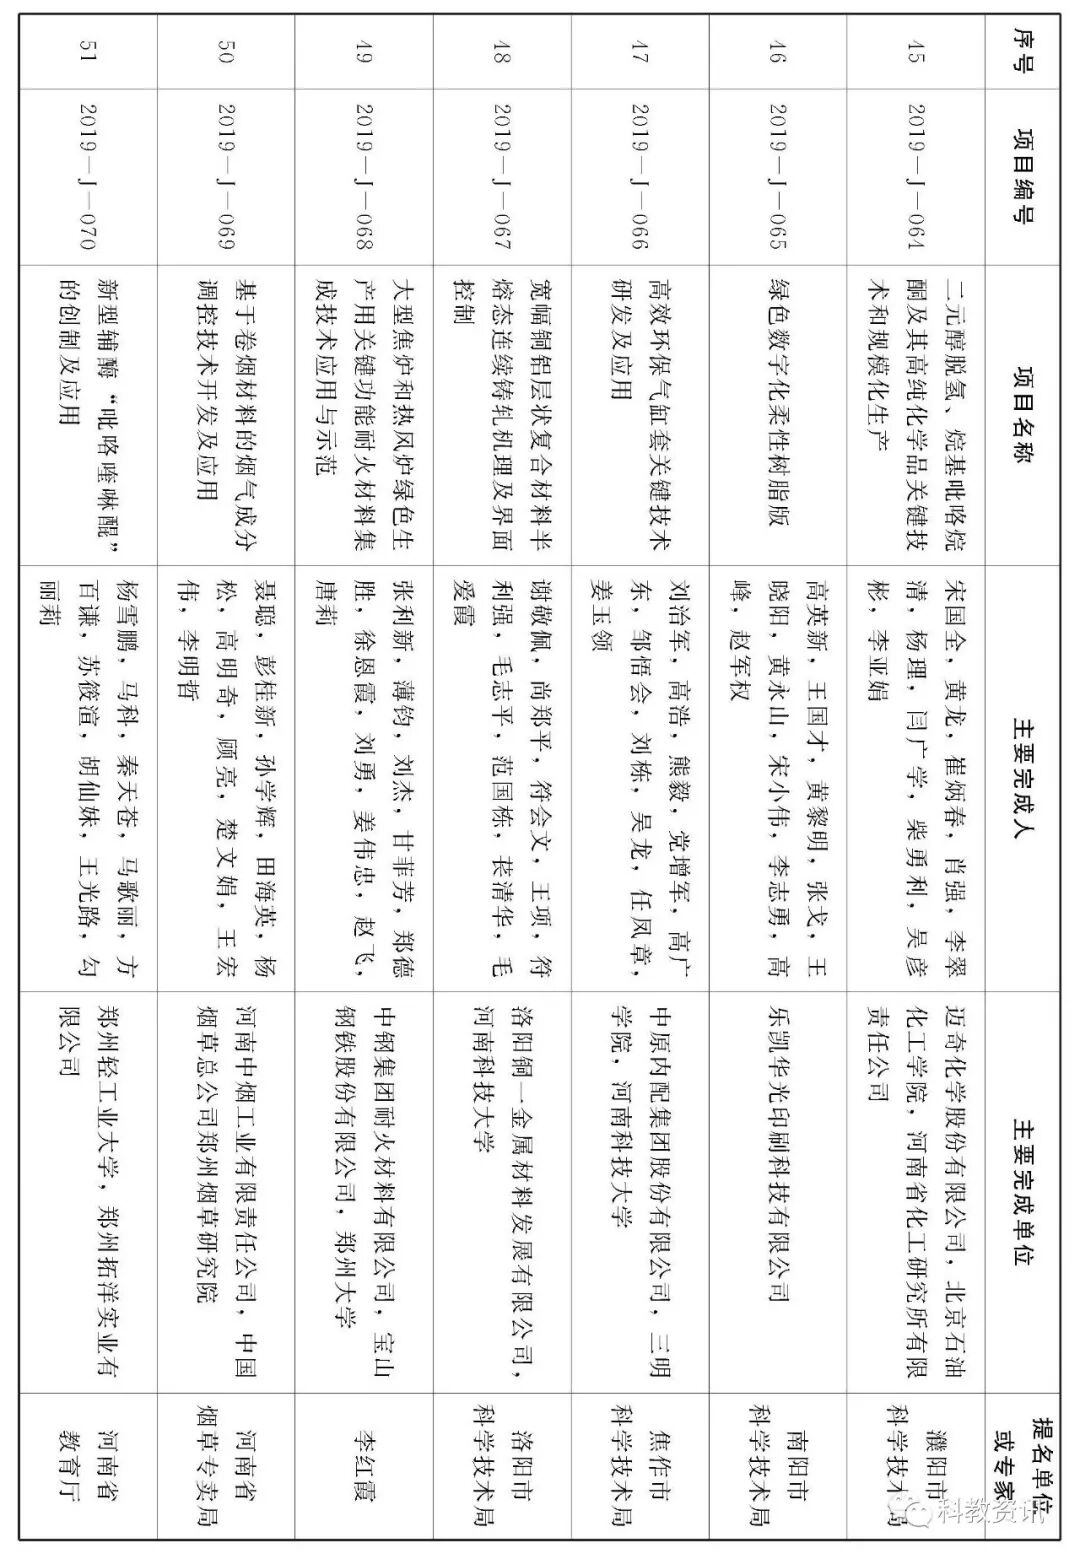 序号
项目编号
项目名称
主要完成人
主要完成单位
提名单位
或专家
45
2019—J—064
二元醇脱氢、烷基吡咯烷
酮及其高纯化学品关键技
术和规模化生产
宋国全，黄龙，崔炳春，肖强，李翠
清，杨理，闫广学，柴勇利，吴彦
彬，李亚娟
迈奇化学股份有限公司，北京石油
化工学院，河南省化工研究所有限
责任公司
濮阳市
科学技术局
46
2019—J—065
绿色数字化柔性树脂版
高英新，王国才，黄黎明，张戈，王
晓阳，黄永山，宋小伟，李志勇，高
峰，赵军权
乐凯华光印刷科技有限公司
南阳市
科学技术局
47
2019—J—066
高效环保气缸套关键技术
研发及应用
刘治军，高浩，熊毅，党增军，高广
东，邹悟会，刘栋，吴龙，任凤章，
姜玉领
中原内配集团股份有限公司，三明
学院，河南科技大学
焦作市
科学技术局
48
2019—J—067
宽幅铜铝层状复合材料半
熔态连续铸轧机理及界面
控制
谢敬佩，尚郑平，符会文，王项，符
利强，毛志平，范国栋，苌清华，毛
爱霞
洛阳铜一金属材料发展有限公司，
河南科技大学
洛阳市
科学技术局
49
2019—J—068
大型焦炉和热风炉绿色生
产用关键功能耐火材料集
成技术应用与示范
张利新，薄钧，刘杰，甘菲芳，郑德
胜，徐恩霞，刘勇，姜伟忠，赵飞，
唐莉
中钢集团耐火材料有限公司，宝山
钢铁股份有限公司，郑州大学
李红霞
50
2019—J—069
基于卷烟材料的烟气成分
调控技术开发及应用
聂聪，彭桂新，孙学辉，田海英，杨
松，高明奇，顾亮，楚文娟，王宏
伟，李明哲
河南中烟工业有限责任公司，中国
烟草总公司郑州烟草研究院
河南省
烟草专卖局
51
2019—J—070
新型辅酶“吡咯喹啉醌”
的创制及应用
杨雪鹏，马科，秦天苍，马歌丽，方
百谦，苏筱渲，胡仙妹，王光路，勾
丽莉
郑州轻工业大学，郑州拓洋实业有
限公司
河南省
教育厅
科教资讯